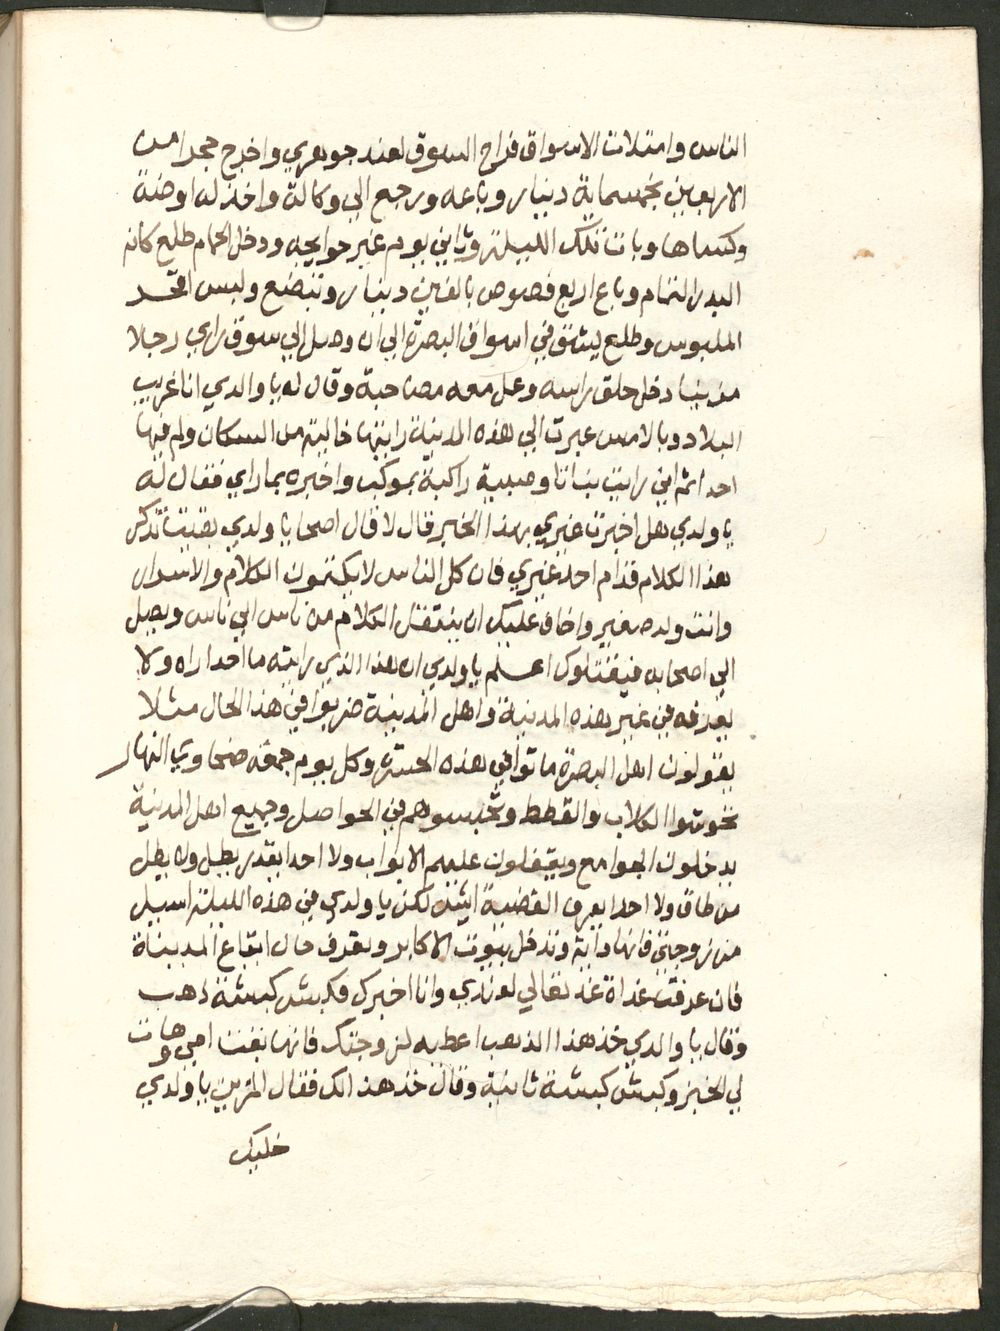 الناس وامتلات الاسواق فراح السوق لعند جوهري واخرج حجرا من
الاربعين بخمسماية دينار وباعه ورجع الي وكالة واخذ له اوضة
وكساها وبات تلك الليلة وثاني يوم غير حوايجه ودخل الحمام طلع كانه
البدر التمام وباع اربع فصوص بالفين دينار وتبضع ولبس افخر
الملبوس وطلع يشق في اسواق البصرة الي ان وصل الي سوق راي رجلا
مزينا دخل حلق راسه وعمل معه مصاحبة وقال له يا والدي انا غريب
البلاد وبالامس عبرت الي هذه المدينة رايتها خالية من السكان ولم فيها
احد ثم اني رايت بناتا وصبية راكبة بموكب واخبره بما راي فقال له
يا ولدي هل اخبرت غيري بهذا الخبر قال لا قال اصحا يا ولدي بقيت تذكر
هذا الكلام قدام احد غيري فان كل الناس لا يكتمون الكلام والاسرار
وانت ولد صغير واخاف عليك ان ينتقل الكلام من ناس الي ناس ويصل
الي اصحابه فيقتلوك اعلم يا ولدي ان هذا الذي رايته ما احدا راه ولا
يعرفه في غير هذه المدينة واهل المدينة ضربوا في هذا الحال مثلا
يقولون اهل البصرة ماتوا في هذه الحسرة وكل يوم جمعة ضحاوي النهار
نحوشوا الكلاب والقطط ونحبسوهم في الحواصل وجميع اهل المدينة
يدخلون الجوامع ويقفلون عليهم الابواب ولا احدا يقدر يطل ولا يطل
من طاق ولا احدا يعرف القضية ايش لكن يا ولدي في هذه الليلة اسيل
من زوجتي فانها داية وتدخل بيوت الاكابر وتعرف حال ابتاع المدينة
فان عرفت غداة غد تعالي لعندي وانا اخبرك فكبش كبشة ذهب
وقال يا والدي خذ هذا الذهب اعطيه لزوجتك فانها بقت امي وهات
لي الخبر وكبش كبشة ثانية وقال خذ هذا لك فقال المزين يا ولدي
خليك